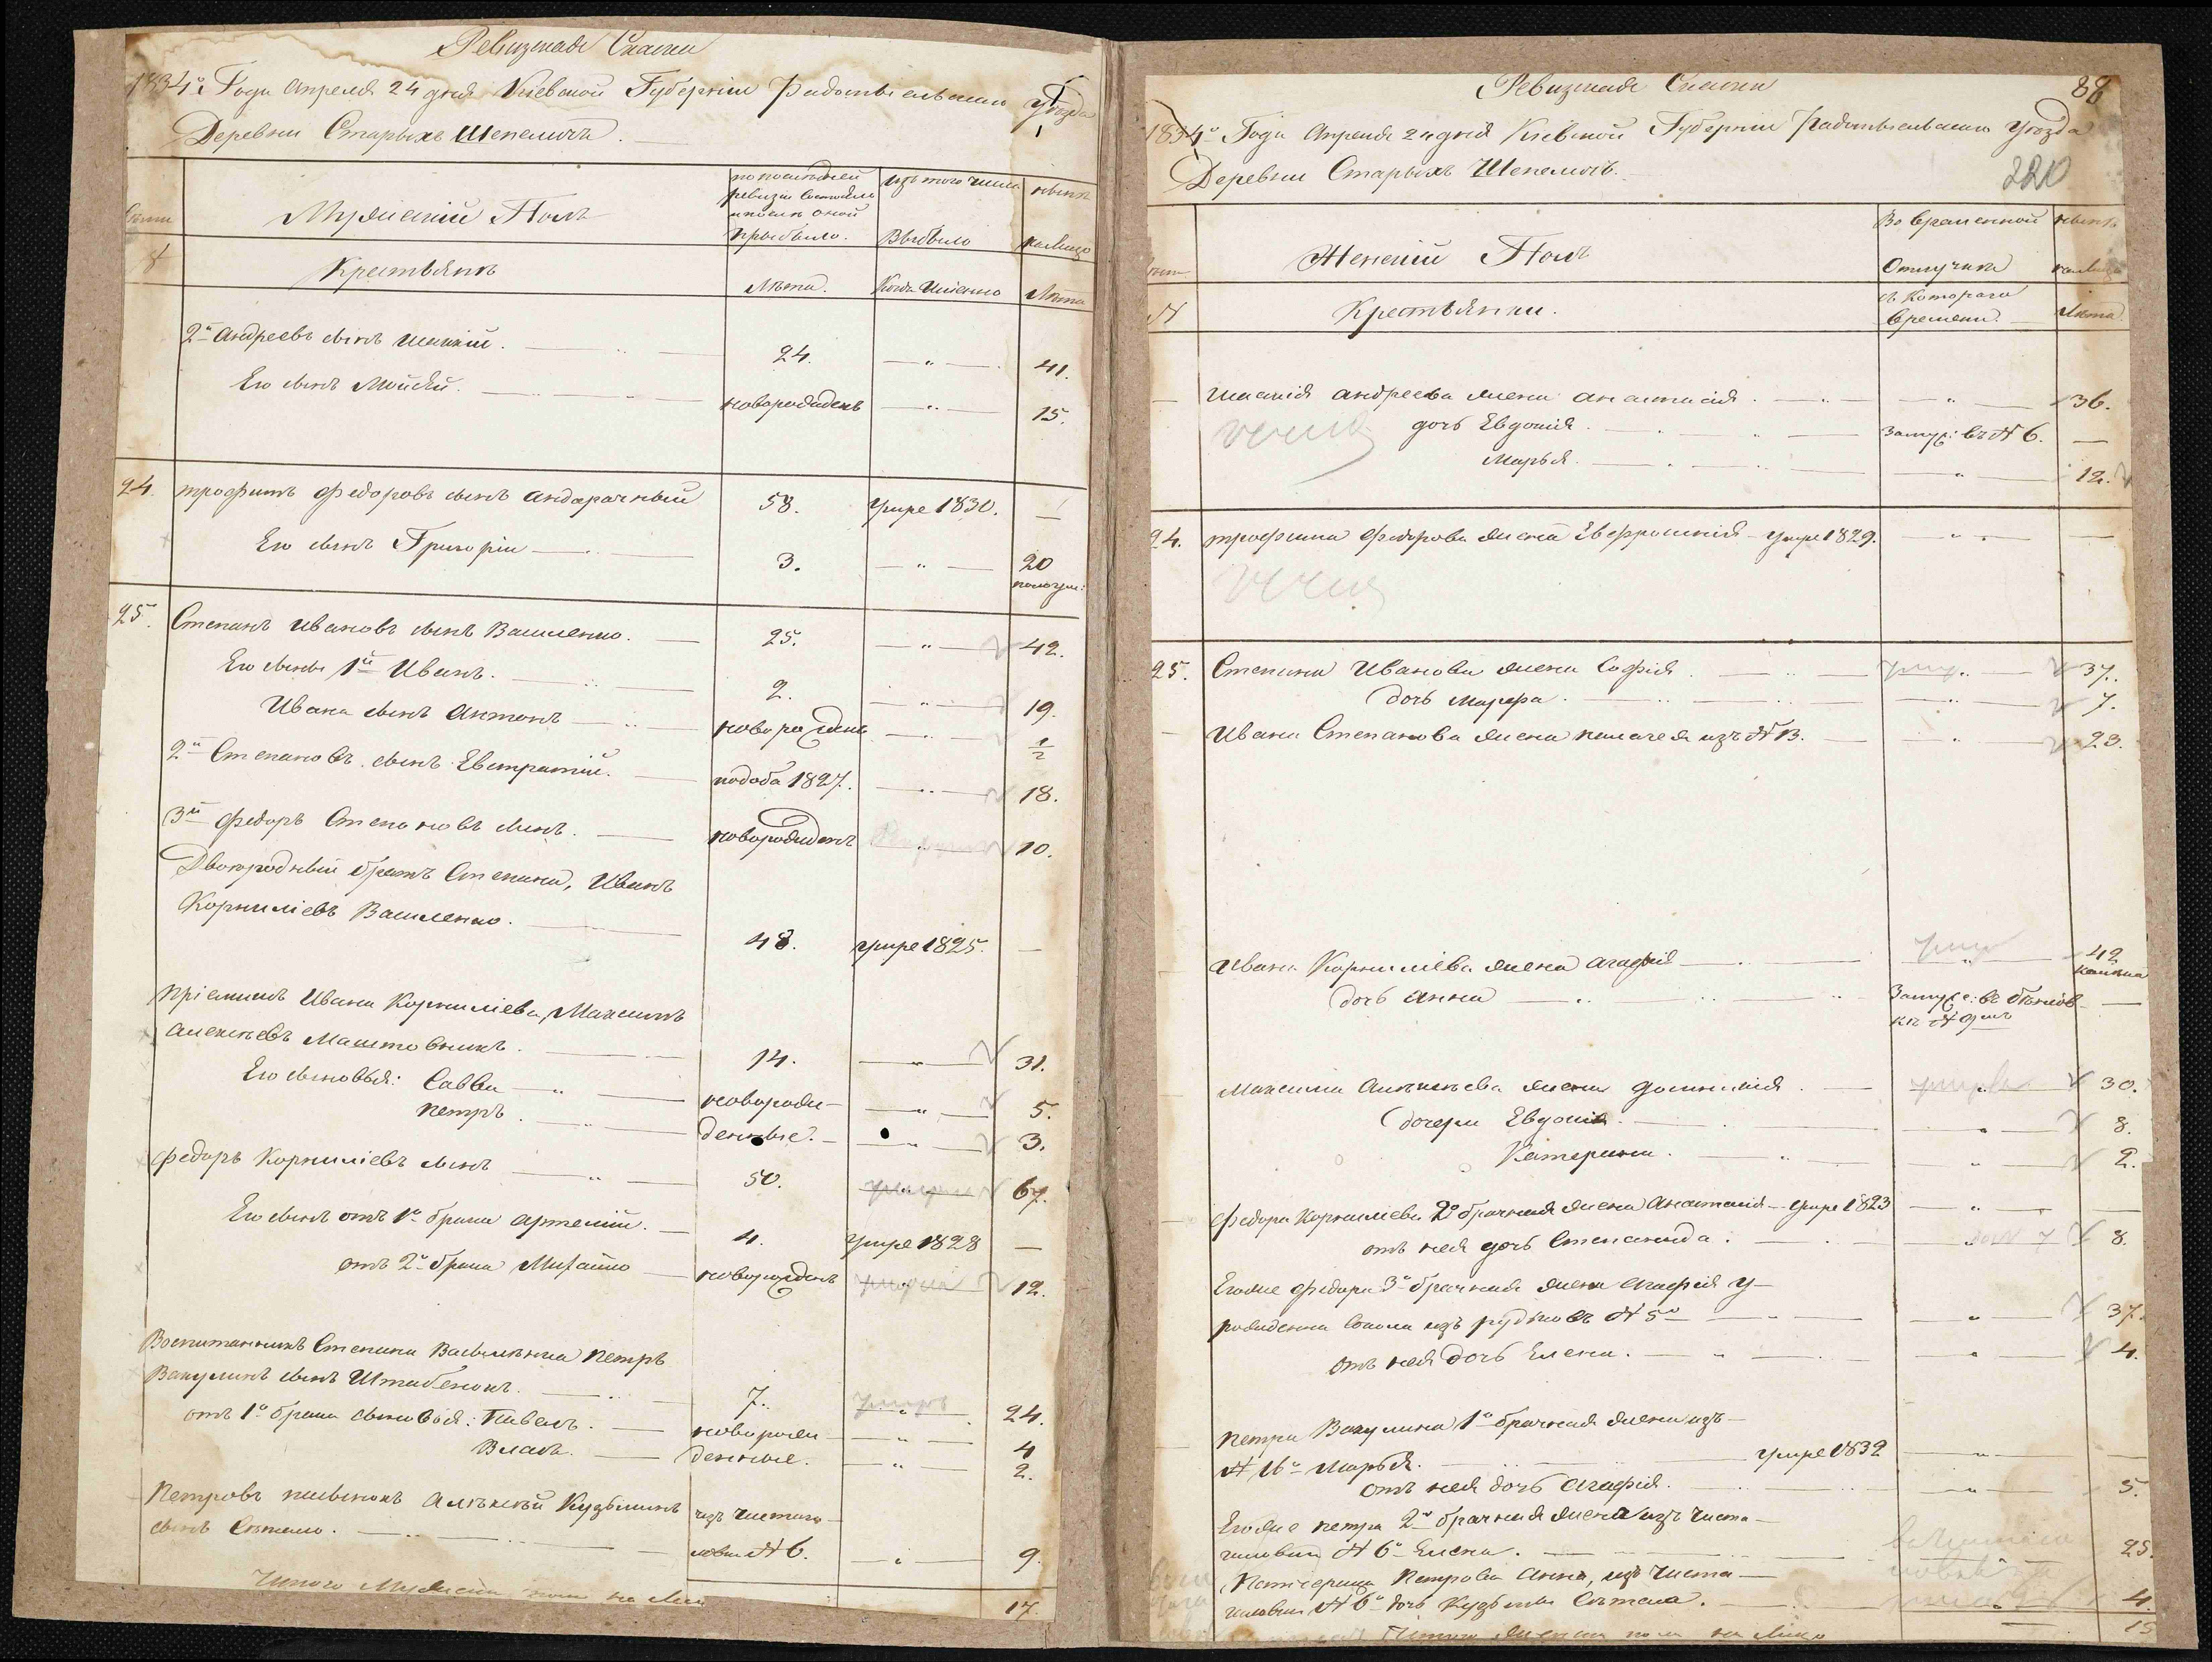 Ревизская Сказка
1834го Года Апреля 24 дня Киевской Губернiи Радомысльскаго уезда
Деревни Старыхъ Шепеличъ
Мужескiй Полъ
по последней ревизiи состояло и после оной прыбыло.
Изъ того числа Выбыло
ныне на лицо
№
Крестьянъ
Лета.
Когда именно
Лета
2й Андреевъ сынъ Iшакiй. 24. 41.
Его сынъ Мойсей. новорожденъ 15.
24. трофимъ Федоровъ сынъ андарачный 58. умре 1830. —
Его сынъ Григорiй 3. 20
25. Степанъ Ивановъ сынъ Василенко. 25. 42.
Его сыны 1й Иванъ. 2. 19.
Ивана сынъ Антонъ новорожденъ 1/2
2й Степановъ сынъ Евстратiй. 1827. 18.
3й Федоръ Степановъ сынъ. новорожденъ 10.
Двоюродный братъ Степана, Иванъ
Корнилiевъ Василенко. 48. умре 1825. —
Прiемышъ Ивана Корнилiева, Максимъ
Алексеевъ 14. 31.
Его сыновья: Савва новорож- 5.
петръ. денные. 3.
федоръ Корнилiевъ сынъ 50. 67.
Его сынъ отъ 1го брака Артемiй. 4. умре 1828 —
отъ 2го брака Михайло новорожденъ 12.
Воспитанникъ Степана Василенка петръ
Вакулинъ сынъ 7. умре 24.
отъ 1го брака сыновья: Павелъ. новорож- 4
Власъ. денные. 2.
Петровъ пасынокъ Алексей Кузьминъ изъ чистого-
сынъ Сетало. ловки № 6. 9.
Итого Мужеска пола на лицо 17.
Ревизская Сказка 88
1834го Года Апреля 24 дня Киевской Губернiи Радомысльскаго Уезда
Деревни Старыхъ Шепеличъ. 220
Женскiй Полъ
Во временной Отлучке
ныне на лицо
№
Крестьянки.
съ Котораго времени.
Лета
Iшакiя андреева жена анастасiя. 36.
дочь Евдокiя. Замуж: въ № 6. —
Марья. 12.
24. трофима Федорова жена Евфросинiя умре 1829. —
25. Степана Иванова жена Софiя. 37.
дочь Марфа. 7.
Ивана Степанова жена палагея изъ № 13. 23.
Ивана Корнилiева жена агафiя 42
дочь анна Замуж: въ —
Максима Алексеева жена домникiя 30.
дочери Евдокiя. 8.
Катерина. 2.
Федора Корнилiева 2го брачная жена Анастасiя умре 1823 —
отъ нея дочь Степанида. 8.
Егоже Федора 3го брачная жена агафiя у-
рожденна Сокола изъ рудьковъ № 5го 37.
отъ нея дочь Елена. 4.
петра Вакулина 1го брачная жена изъ
№ 16го Марья. умре 1832 —
отъ нея дочь агафiя. 5.
Егоже петра 2го брачная жена изъ чиста-
галовки № 6го Елена. 25.
Падчерица Петрова Анна, изъ чиста-
галовки № 6го дочь Кузьмы Сетала. 4.
Итого женска пола на лицо 15